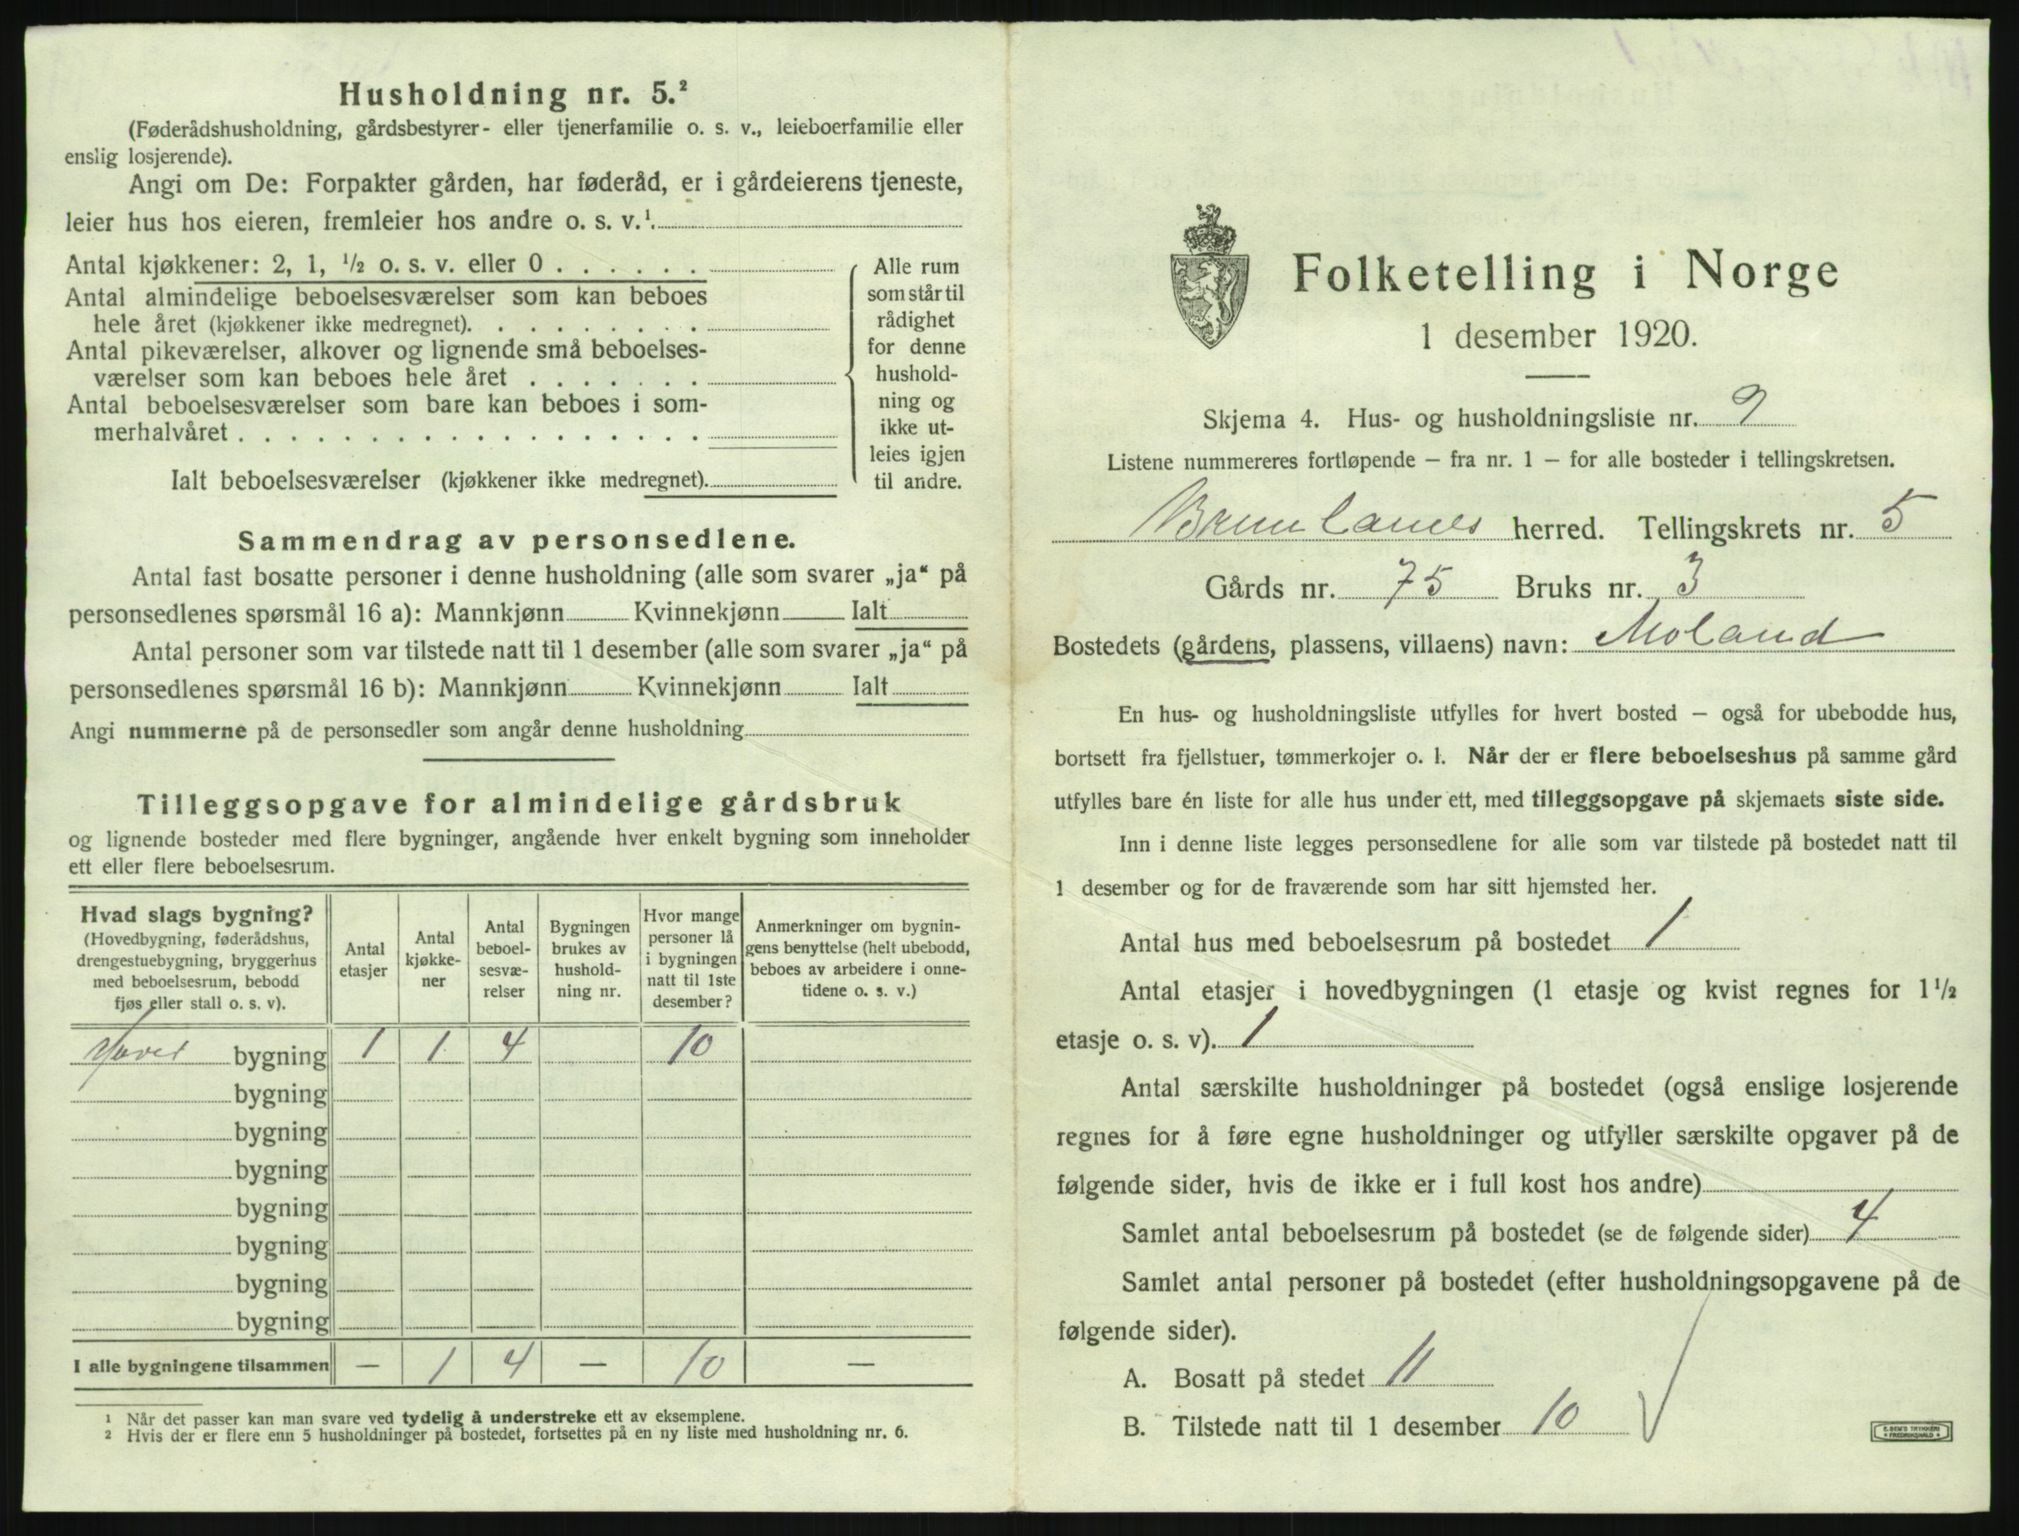 Husholdning nr. 5.²
(Føderådshusholdning, gårdsbestyrer- eller tjenerfamilie o. s. v., leieboerfamilie eller
enslig losjerende).
Angi om De: Forpakter gården, har føderåd, er i gårdeierens tjeneste,
leier hus hos eieren, fremleier hos andre o. s. v.¹
Antal kjøkkener: 2, 1, ½ o. s. v. eller 0 . . . . . .
Antal almindelige beboelsesværelser som kan beboes
hele året (kjøkkener ikke medregnet). . . . . . . . .
Antal pikeværelser, alkover og lignende små beboelses-
værelser som kan beboes hele året . . . . . . .
Antal beboelsesværelser som bare kan beboes i som-
merhalvåret . . . . . . . . . . . . . . . . . .
Ialt beboelsesværelser (kjøkkener ikke medregnet).
Alle rum
som står til
rådighet
for denne
hushold-
ning og
ikke ut-
leies igjen
til andre.
Sammendrag av personsedlene.
Antal fast bosatte personer i denne husholdning (alle som svarer „ja“ på
personsedlenes spørsmål 16 a): Mannkjønn Kvinnekjønn Ialt
Antal personer som var tilstede natt til 1 desember (alle som svarer „ja“ på
personsedlenes spørsmål 16 b): Mannkjønn Kvinnekjønn Ialt
Angi nummerne på de personsedler som angår denne husholdning
Tilleggsopgave for almindelige gårdsbruk
og lignende bosteder med flere bygninger, angående hver enkelt bygning som inneholder
ett eller flere beboelsesrum.
Hvad slags bygning?
(Hovedbygning, føderådshus,
drengestuebygning, bryggerhus
med beboelsesrum, bebodd
fjøs eller stall o. s. v).
Antal
etasjer
Antal
kjøkke-
ner
Antal
beboel-
sesvæ-
relser
Bygningen
brukes av
hushold-
ning nr.
Hvor mange
personer lå
i bygningen
natt til 1ste
desember?
Anmerkninger om bygnin-
gens benyttelse (helt ubebodd,
beboes av arbeidere i onne-
tidene o. s. v.)
Hoved bygning 1 1 4 10
bygning
bygning
bygning
bygning
bygning
bygning
bygning
I alle bygningene tilsammen — 1 4 — 10 —
1 Når det passer kan man svare ved tydelig å understreke ett av eksemplene.
2 Hvis der er flere enn 5 husholdninger på bostedet, fortsettes på en ny liste med husholdning nr. 6.
Folketelling i Norge
1 desember 1920.
Skjema 4. Hus- og husholdningsliste nr. 9
Listene nummereres fortløpende – fra nr. 1 – for alle bosteder i tellingskretsen.
Brunlanes herred. Tellingskrets nr. 5
Gårds nr. 75 Bruks nr. 3
Bostedets (gårdens, plassens, villaens) navn: Moland
En hus- og husholdningsliste utfylles for hvert bosted – også for ubebodde hus,
bortsett fra fjellstuer, tømmerkojer o. l. Når der er flere beboelseshus på samme gård
utfylles bare én liste for alle hus under ett, med tilleggsopgave på skjemaets siste side.
Inn i denne liste legges personsedlene for alle som var tilstede på bostedet natt til
1 desember og for de fraværende som har sitt hjemsted her.
Antal hus med beboelsesrum på bostedet 1
Antal etasjer i hovedbygningen (1 etasje og kvist regnes for 1½
etasje o. s. v). 1
Antal særskilte husholdninger på bostedet (også enslige losjerende
regnes for å føre egne husholdninger og utfyller særskilte opgaver på de
følgende sider, hvis de ikke er i full kost hos andre)
Samlet antal beboelsesrum på bostedet (se de følgende sider) 4
Samlet antal personer på bostedet (efter husholdningsopgavene på de
følgende sider).
A. Bosatt på stedet 11
B. Tilstede natt til 1 desember 10
E. SEM'S TRYKKERI
FREDRIKSHALD